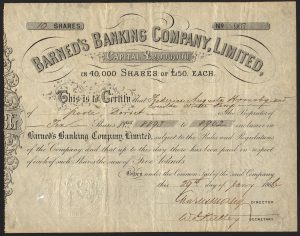 10 SHARES. No 967
BARNED'S BANKING COMPANY, LIMITED,
CAPITAL £2,000,000
IN 40,000 SHARES OF £50, EACH.
This is to Certify that Frederica Augusta
of Poole Dorset is the Proprietor
of Ten Shares Nos 8893 to 8902 inclusive in
Barned's Banking Company, Limited, subject to the Rules and Regulations
of the Company and that up to this day there has been paid in respect
of each of such Shares the sum of Five Pounds
Given under the Common Seal of the said Company
this 29th day of Jany 1866
DIRECTOR
SECRETARY